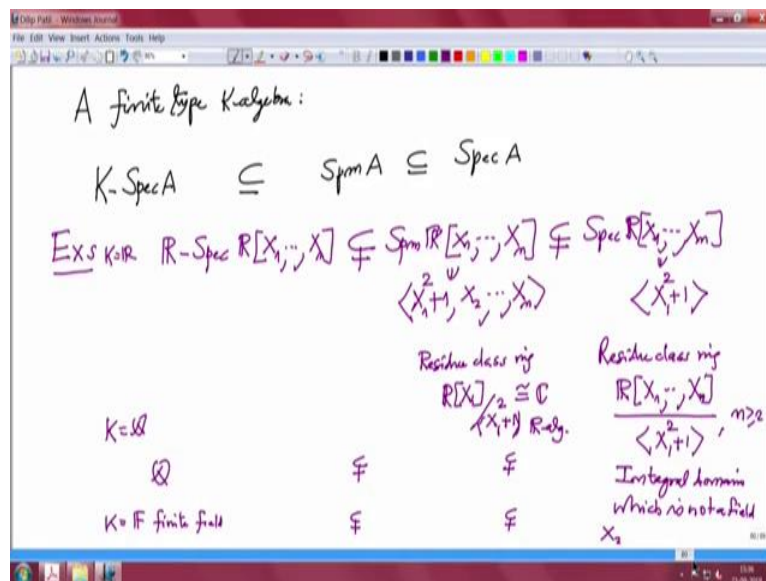 Dilip Patil - Windows Journal
File Edit View Insert Actions Tools Help
A finite type K-algebra:
K-Spec A ⊆ Spm A ⊆ Spec A
Exs K=ℝ ℝ-Spec ℝ[X₁,…,Xₙ] ⊊ Spm ℝ[X₁,…,Xₙ] ⊊ Spec ℝ[X₁,…,Xₙ]
⟨X₁²+1, X₂,…,Xₙ⟩ ⟨X₁²+1⟩
Residue class ring Residue class ring
ℝ[X₁]/⟨X₁²+1⟩ ≅ ℂ ℝ[X₁,…,Xₙ]/⟨X₁²+1⟩, n≥2
ℝ-alg.
K=ℚ
ℚ ⊊ ⊊ Integral domain
which is not a field
K=𝔽 finite field ⊊ ⊊
X₂